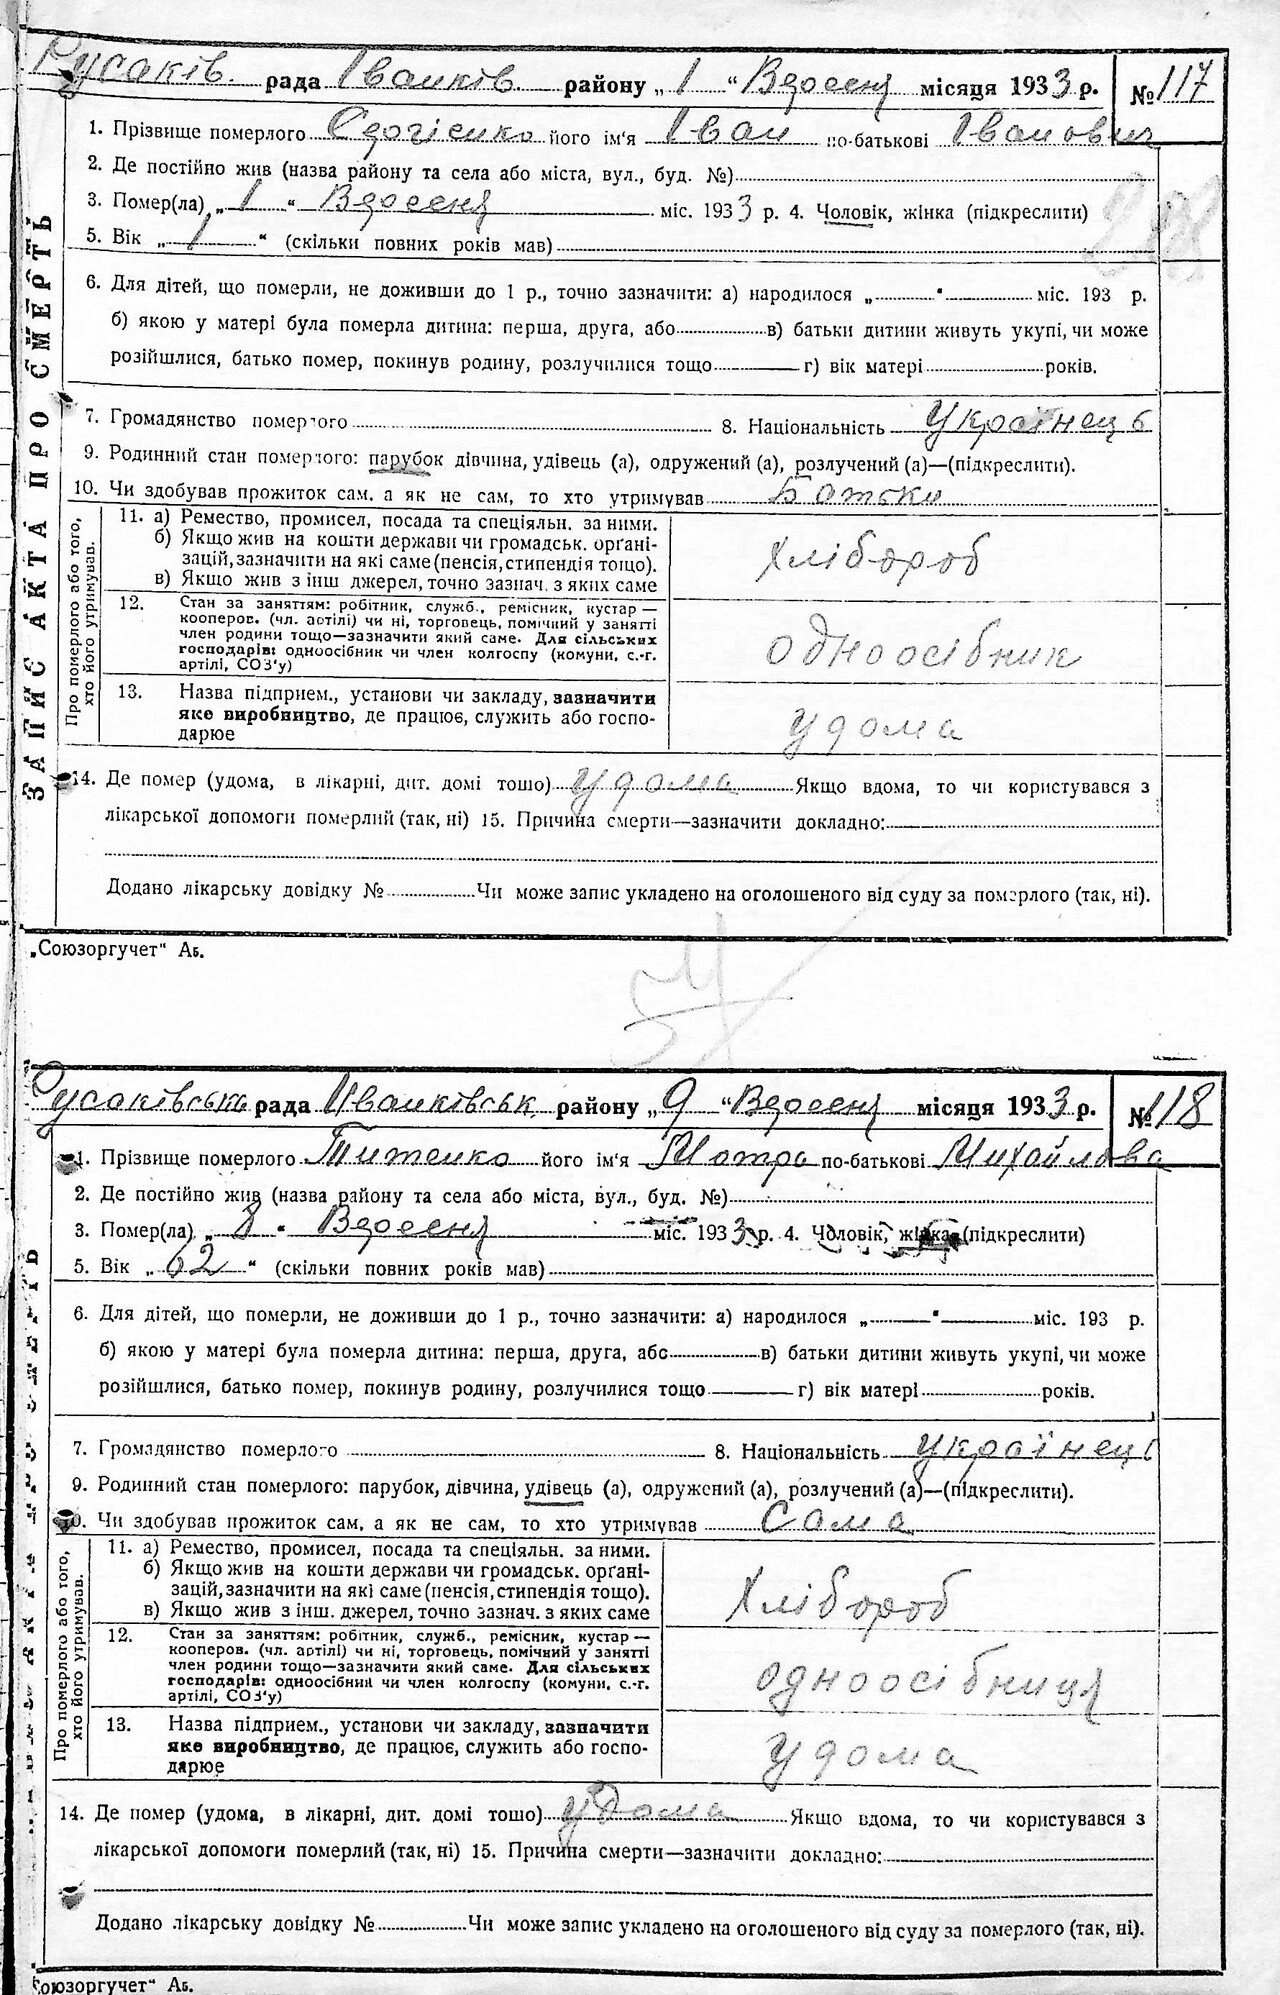 Русаків. рада Іванків. району „ 1 “ Вересня місяця 1933 р. № 117
1. Прізвище померлого його ім‘я Іван по-батькові Іванович
2. Де постійно жив (назва району та села або міста, вул., буд. №)
3. Помер(ла) „ 1 “ Вересня міс. 1933 р. 4. Чоловік, жінка (підкреслити)
5. Вік „ 1 “ (скільки повних років мав)
6. Для дітей, що померли, не доживши до 1 р., точно зазначити: а) народилося „ “ міс. 193 р.
б) якою у матері була померла дитина: перша, друга, або в) батьки дитини живуть укупі, чи може
розійшлися, батько помер, покинув родину, розлучилися тощо г) вік матері років.
7. Громадянство померлого 8. Національність Українець
9. Родинний стан померлого: парубок дівчина, удівець (а), одружений (а), розлучений (а)—(підкреслити).
10. Чи здобував прожиток сам, а як не сам, то хто утримував Батьки
ЗАПИС АКТА ПРО СМЕРТЬ
Про померлого або того,
хто його утримував.
11. а) Ремество, промисел, посада та спеціяльн. за ними.
б) Якщо жив на кошти держави чи громадськ. орґані-
зацій, зазначити на які саме (пенсія, стипендія тощо).
в) Якщо жив з інш джерел, точно зазнач. з яких саме
хлібороб
12. Стан за заняттям: робітник, служб., ремісник, кустар —
кооперов. (чл. артілі) чи ні, торговець, помічний у занятті
член родини тощо—зазначити який саме. Для сільських
господарів: одноосібник чи член колгоспу (комуни, с.-г.
артілі, СОЗ‘у)
одноосібник
13. Назва підприєм., установи чи закладу, зазначити
яке виробництво, де працює, служить або госпо-
дарює
удома
14. Де помер (удома, в лікарні, дит. домі тошо) удома Якщо вдома, то чи користувався з
лікарської допомоги померлий (так, ні) 15. Причина смерти—зазначити докладно:
Додано лікарську довідку № Чи може запис укладено на оголошеного від суду за померлого (так, ні).
„Союзоргучет“ Аб.
Русаківська рада Іванківськ району „ 9 “ Вересня місяця 1933 р. № 118
1. Прізвище померлого Титенко його ім‘я Мотра по-батькові Михайлова
2. Де постійно жив (назва району та села або міста, вул., буд. №)
3. Помер(ла) „ 8 “ Вересня міс. 1933 р. 4. Чоловік, жінка (підкреслити)
5. Вік „ 62 “ (скільки повних років мав)
6. Для дітей, що померли, не доживши до 1 р., точно зазначити: а) народилося „ “ міс. 193 р.
б) якою у матері була померла дитина: перша, друга, або в) батьки дитини живуть укупі, чи може
розійшлися, батько помер, покинув родину, розлучилися тощо г) вік матері років.
7. Громадянство померлого 8. Національність українець
9. Родинний стан померлого: парубок, дівчина, удівець (а), одружений (а), розлучений (а)—(підкреслити).
10. Чи здобував прожиток сам, а як не сам, то хто утримував Сама
Про померлого або того,
хто його утримував.
11. а) Ремество, промисел, посада та спеціяльн. за ними.
б) Якщо жив на кошти держави чи громадськ. орґані-
зацій, зазначити на які саме (пенсія, стипендія тощо).
в) Якщо жив з інш. джерел, точно зазнач. з яких саме
Хлібороб
12. Стан за заняттям: робітник, служб., ремісник, кустар —
кооперов. (чл. артілі) чи ні, торговець, помічний у занятті
член родини тощо—зазначити який саме. Для сільських
господарів: одноосібний чи член колгоспу (комуни, с.-г.
артілі, СОЗ‘у)
одноосібниця
13. Назва підприєм., установи чи закладу, зазначити
яке виробництво, де працює, служить або госпо-
дарює
удома
14. Де помер (удома, в лікарні, дит. домі тошо) удома Якщо вдома, то чи користувався з
лікарської допомоги померлий (так, ні) 15. Причина смерти—зазначити докладно:
Додано лікарську довідку № Чи може запис укладено на оголошеного від суду за померлого (так, ні).
Союзоргучет“ Аб.